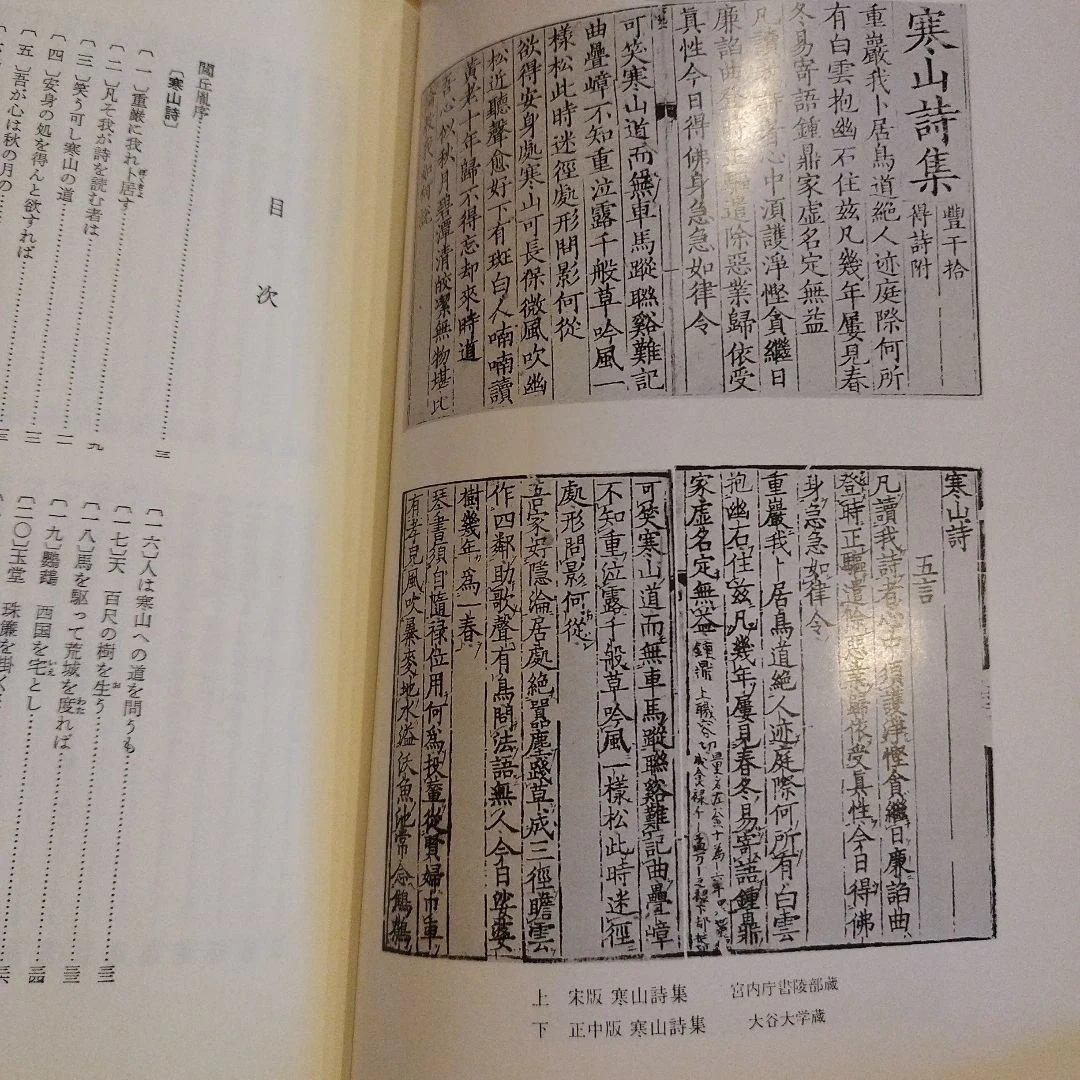 寒山詩集
豐干拾
得詩附
重巖我卜居鳥道絶人迹庭際何所
有白雲抱幽石住茲凡幾年屢見春
冬易寄語鍾鼎家虚名定無益
凡讀我詩者心中須護淨慳貪繼日
廉諂曲登時正驅遣除惡業歸依受
真性今日得佛身急急如律令
可笑寒山道而無車馬蹤聯谿難記
曲疊嶂不知重泣露千般草吟風一
樣松此時迷徑處形問影何從
欲得安身處寒山可長保微風吹幽
松近聽聲愈好下有斑白人喃喃讀
黄老十年歸不得忘却來時道
吾心似秋月碧潭清皎潔無物堪比
寒山詩
五言
凡讀我詩者心中須護淨慳貪繼日廉諂曲
登時正驅遣除惡業歸依受真性今日得佛
身急急如律令
重巖我卜居鳥道絶人迹庭際何所有白雲
抱幽石住茲凡幾年屢見春冬易寄語鍾鼎
家虚名定無益
可笑寒山道而無車馬蹤聯谿難記曲疊嶂
不知重泣露千般草吟風一樣松此時迷徑
處形問影何從
吾家好隱淪居處絶囂塵踐草成三徑瞻雲
作四鄰助歌聲有鳥問法語無人今日娑婆
樹幾年爲一春
琴書須自隨祿位用何爲投輦從賢婦巾車
有孝兒風吹暴麥地水溢沃魚池常念鷦鷯
上　宋版 寒山詩集　宮内庁書陵部蔵
下　正中版 寒山詩集　大谷大学蔵
目次
閭丘胤序……三
〔寒山詩〕
〔一〕重巌に我れ卜居す……九
〔二〕凡そ我が詩を読む者は……
〔三〕笑う可し寒山の道……
〔四〕安身の処を得んと欲すれば……
〔五〕吾が心は秋の月の……
〔一六〕人は寒山への道を問うも……
〔一七〕天　百尺の樹を生う……
〔一八〕馬を駆って荒城を度れば……
〔一九〕鸚鵡　西国を宅とし……
〔二〇〕玉堂　珠簾を掛く